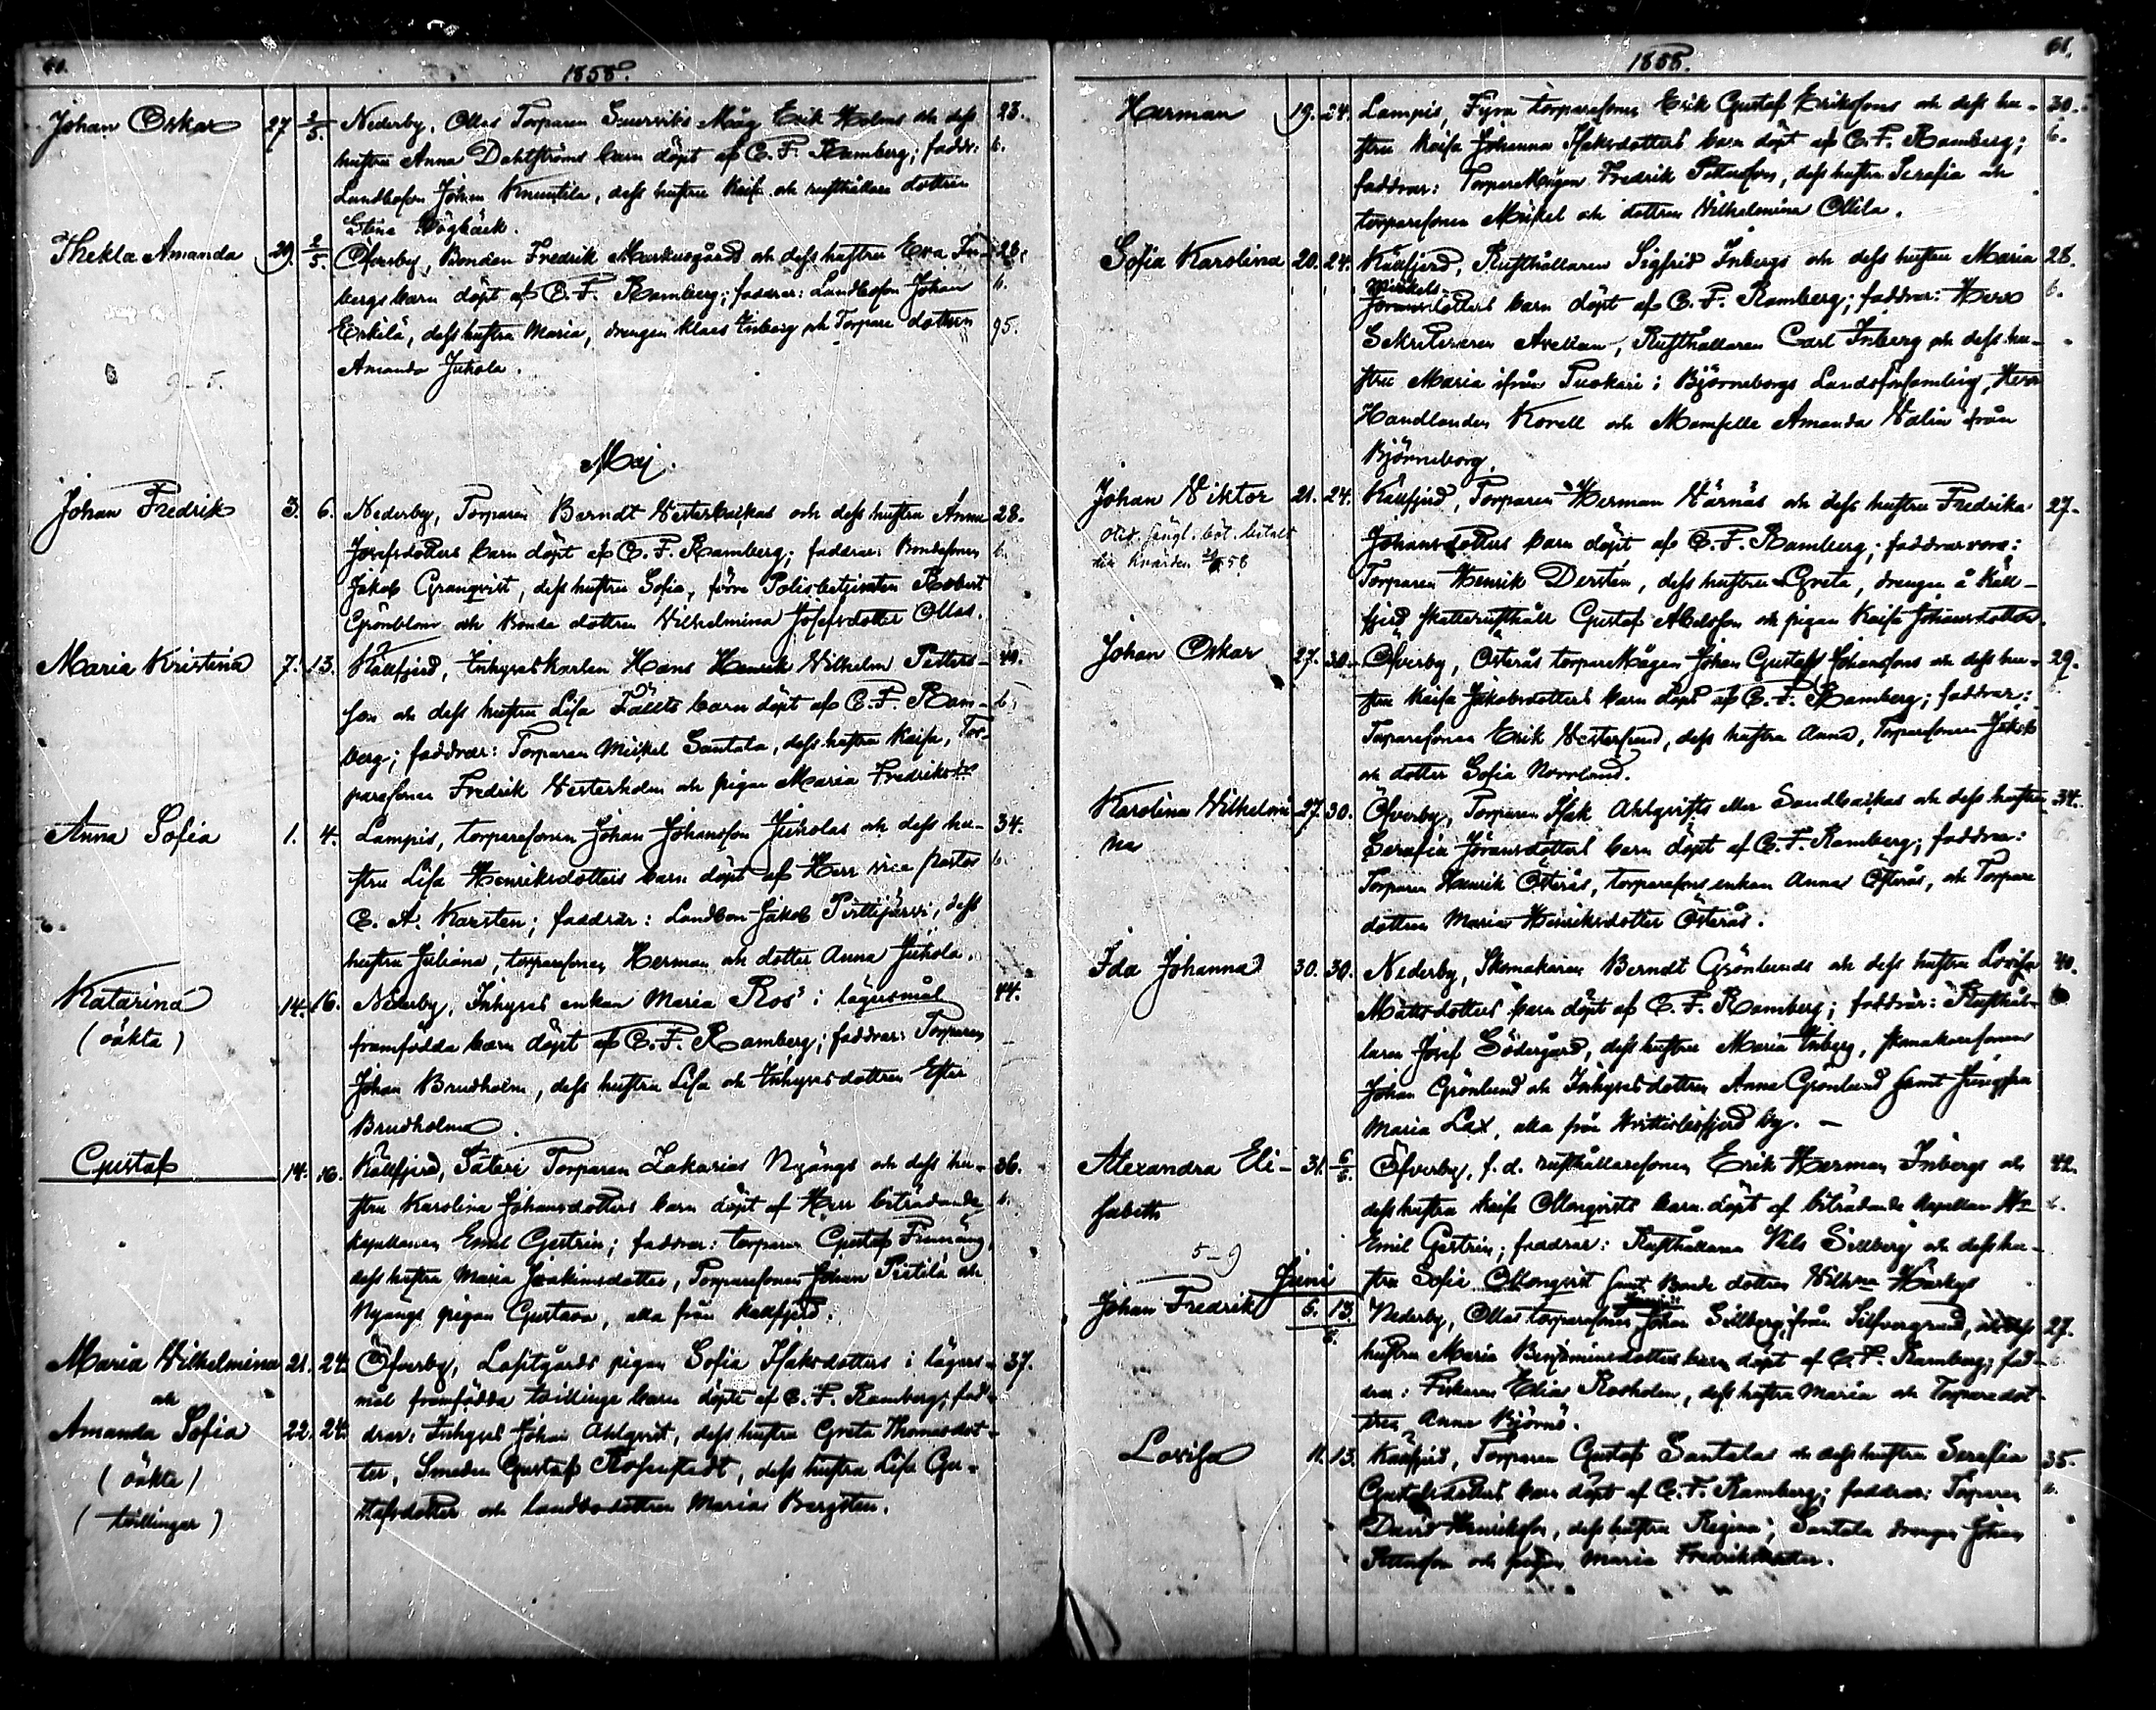 61.
1858.
Johan Oskar 27 2/5. Nederby, Ollas Torparen Suursviks Måg Erik Holms och dess 23.
hustru Anna Dahlströms barn döpt af C. F. Ramberg; faddr: b.
Landboson Johan Knuutila, dess hustru Kaisa och rusthållare dottren
Stina Högback.
Thekla Amanda 29. 2/5. Öfverby, Bonden Fredrik Markusgårds och dess hustru Eva In- 28.
bergs barn döpt af C. F. Ramberg; faddrar: Landboson Johan b.
Erkilä, dess hustru Maria, drengen Klaes Inberg och Torpare dottren 95.
Amanda Juhola.
9-5.
Maj.
Johan Fredrik 3. 6. Nederby, Torparen Berndt Vesterbackas och dess hustru Anna 28.
Josefsdotters barn döpt af C. F. Ramberg; faddrar: Bondesonen b.
Jakob Granqvist, dess hustru Sofia, förra Polisbetjenten Robert
Grönblom och Bonde dottren Vilhelmina Josefsdotter Ollas.
Maria Kristina 7. 13. Källfjerd, Inhyseskarlen Hans Henrik Vilhelm Petters- 40.
son och dess hustru Lisa Fälts barn döpt af C. F. Ram- b.
berg; faddrar: Torparen Mickel Santala, dess hustru Kaisa, Tor-
paresonen Fredrik Vesterholm och pigan Maria Fredriksdr
Anna Sofia 1. 4. Lampis, torparesonen Johan Johansson Juholas och dess hu- 34.
stru Lisa Henriksdotters barn döpt af Herr vice pastor b.
C. A. Karsten; faddrar: Landbon Jakob Pirttijärvi, dess
hustru Juliana, torparesonen Herman och dotter Anna Juhola.
Katarina 14. 16. Nederby, Inhyses enkan Maria Ros' i lägersmål 44.
(oäkta) framfödda barn döpt af C. F. Ramberg; faddrar: Torparen
Johan Brudholm, dess hustru Lisa och Inhysesdottren Ester
Brudholm
Gustaf 14. 16. Källfjerd, Säteri Torparen Zakarias Nyängs och dess hu- 36.
stru Karolina Johansdotters barn döpt af Herr biträdande b.
kapellanen Emil Gestrin; faddrar: torparen Gustaf Finnäng
dess hustru Maria Joakimsdotter, Torparesonen Johan Pirtilä och
Nyängs pigan Gustava, alla från Källfjerd.
Maria Vilhelmina 21. 24. Öfverby, Lassgårds pigan Sofia Isaksdotters i lägers- 37.
och mål framfödda tvillinge barn döpte af C. F. Ramberg; fad-
Amanda Sofia 22. 24. drar: Inhyses Johan Ahlqvist, dess hustru Greta Thomasdot-
(oäkta) ter, Smeden Gustaf Rosenstedt, dess hustru Lisa Gu-
(tvillingar) stafsdotter och landbodottren Maria Bergsten.
61.
1858.
Herman 19. 24. Lampis, Fyra torparesonen Erik Gustaf Erikssons och dess hu- 30.
stru Kaisa Johanna Isaksdotters barn döpt af C. F. Ramberg; b.
faddrar: TorpareMågen Fredrik Pettersson, dess hustru Serafia och
torparesonen Mickel och dottren Vilhelmina Ollila.
Sofia Karolina 20. 24. Källfjerd, Rusthållaren Sigfrid Inbergs och dess hustru Maria 28.
Mickels-
Joransdotters barn döpt af C. F. Ramberg; faddrar: Herr b.
Sekreteraren Avellan, Rusthållaren Carl Inberg och dess hu-
stru Maria ifrån Tuokari i Björneborgs Landsförsamling, Herr
Handlanden Korell och Mamselle Amanda Valin från
Björneborg.
Johan Viktor 21. 24. Källfjerd, Torparen Herman Värnäs och dess hustru Fredrika 27.
Johansdotters barn döpt af C. F. Ramberg; faddrar voro:
Torparen Henrik Dersten, dess hustru Greta, drengen å Käll-
fjerd Skatterusthåll Gustaf Abelsson och pigan Kaisa Johansdotter.
Johan Oskar 27. 30. Öfverby, Österås torpareMågen Johan Gustaf Johanssons och dess hu- 29.
stru Kaisa Jakobsdotters barn döpt af C. F. Ramberg; faddrar:
Torparesonen Erik Vesterlund, dess hustru Anna, Torparesonen Jakob
och dotter Sofia Norrlund.
Karolina Vilhelmi- 27. 30. Öfverby, Torparen Isak Ahlqvists eller Sandbackas och dess hustru 34.
na Serafia Joransdotters barn döpt af C. F. Ramberg; faddrar:
Torparen Henrik Österås, torparesons enkan Anna Österås, och Torpare
dottren Maria Henriksdotter Österås.
Ida Johanna 30. 30. Nederby, Skomakaren Berndt Grönlunds och dess hustru Lovisa 40.
Mattsdotters barn döpt af C. F. Ramberg; faddrar: Rusthål-
laren Josef Södergård, dess hustru Maria Inberg, skomakaresonen
Johan Grönlund och Inhysesdottren Anna Grönlund samt Jungfru
Maria Lax, alla från Hvittisbofjerd by. -
Alexandra Eli- 31. 6/6. Öfverby, f. d. rusthållaresonen Erik Herman Inbergs och 42.
sabeth dess hustru Kaisa Ollonqvists barn döpt af biträdande Kapellan Hr b.
Emil Gestrin; faddrar: Rusthållaren Nils Sillberg och dess hu-
5-9
Juni
stru Sofia Ollonqvist samt Bonde dottren Vilhna
Johan Fredrik 6. 13. Nederby, Ollas torparesonen Johan Sillberg från Silfvergrund, och dess 27.
6.
hustru Maria Benjaminsdotters barn döpt af C. F. Ramberg; fad-
drar: Fiskaren Elias Rosholm, dess hustru Maria och Torparedot-
tren Anna Björnö.
Lovisa 11. 13. Källfjerd, Torparen Gustaf Santalas och dess hustru Serafia 35.
Gustafsdotters barn döpt af C. F. Ramberg; faddrar: Torparen b.
David Henriksson, dess hustru Regina, Santala drengen Johan
Pettersson och pigan Maria Fredriksdotter.